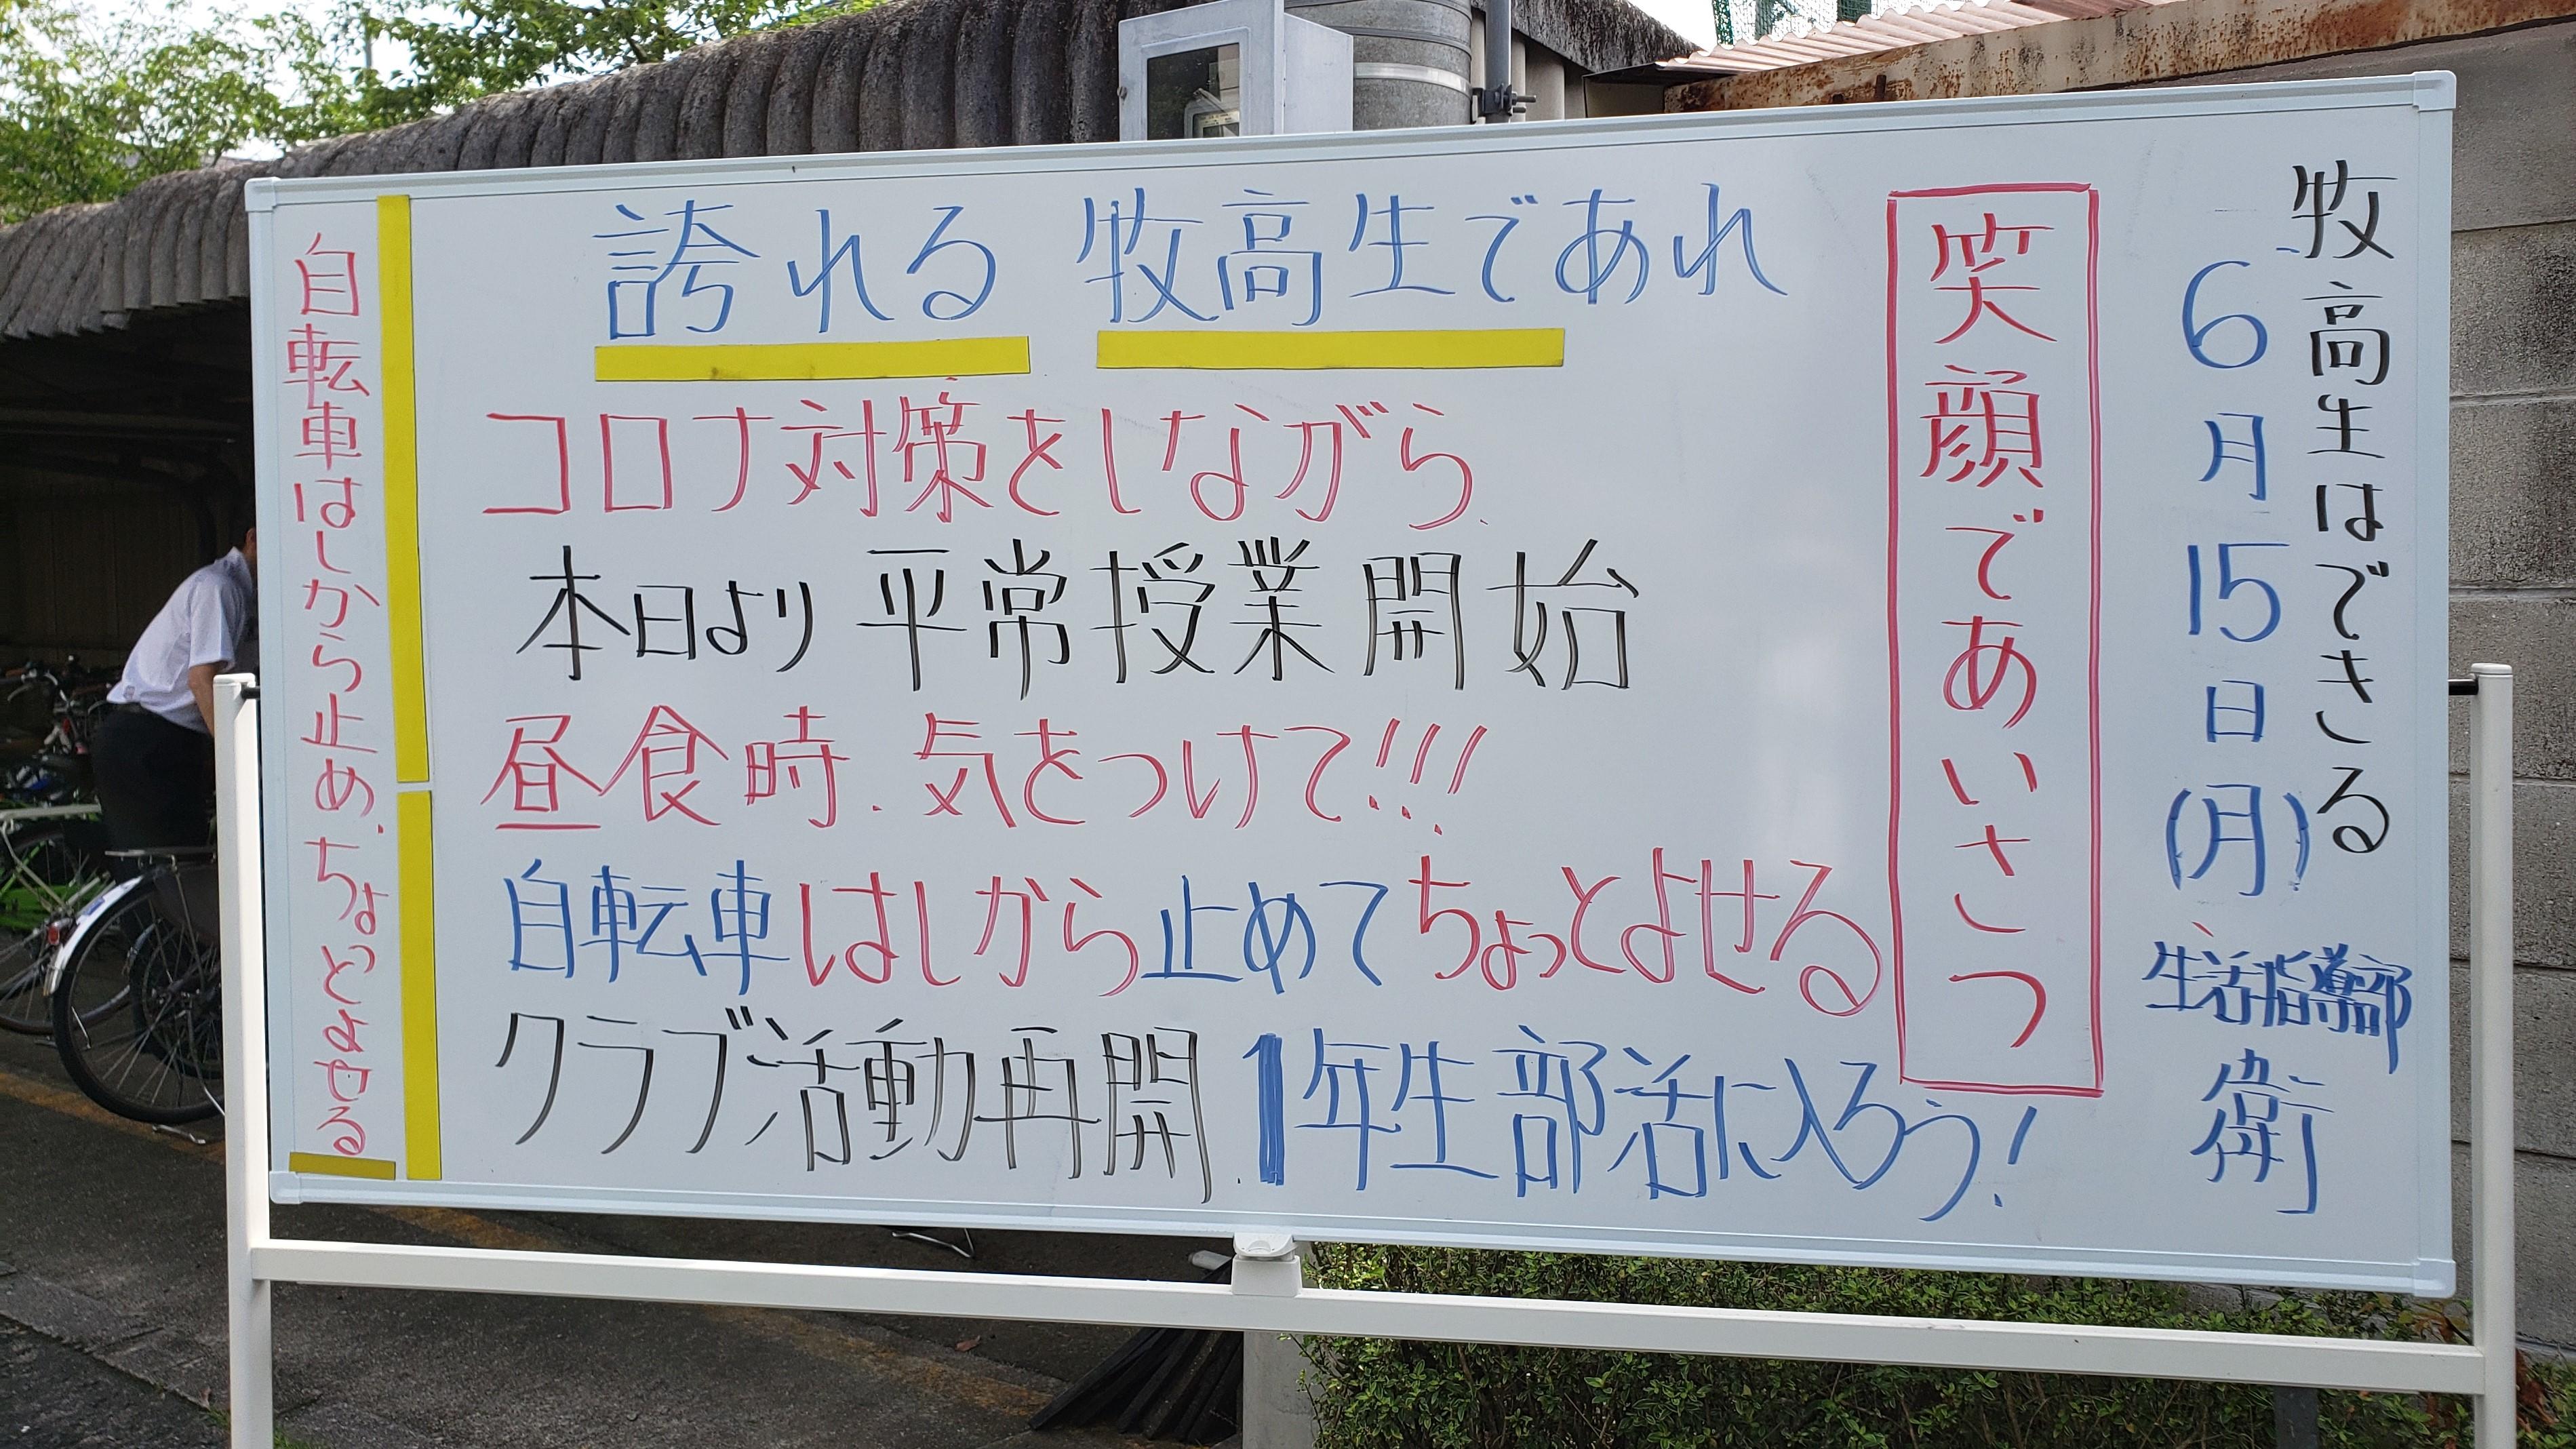 牧高生はできる
6月15日(月)
生活指導部
衛
笑顔であいさつ
誇れる 牧高生であれ
コロナ対策をしながら
本日より平常授業開始
昼食時.気をつけて!!!
自転車はしから止めてちょっとよせる
クラブ活動再開.1年生部活に入ろう!
自転車はしから止め、ちょっとよせる